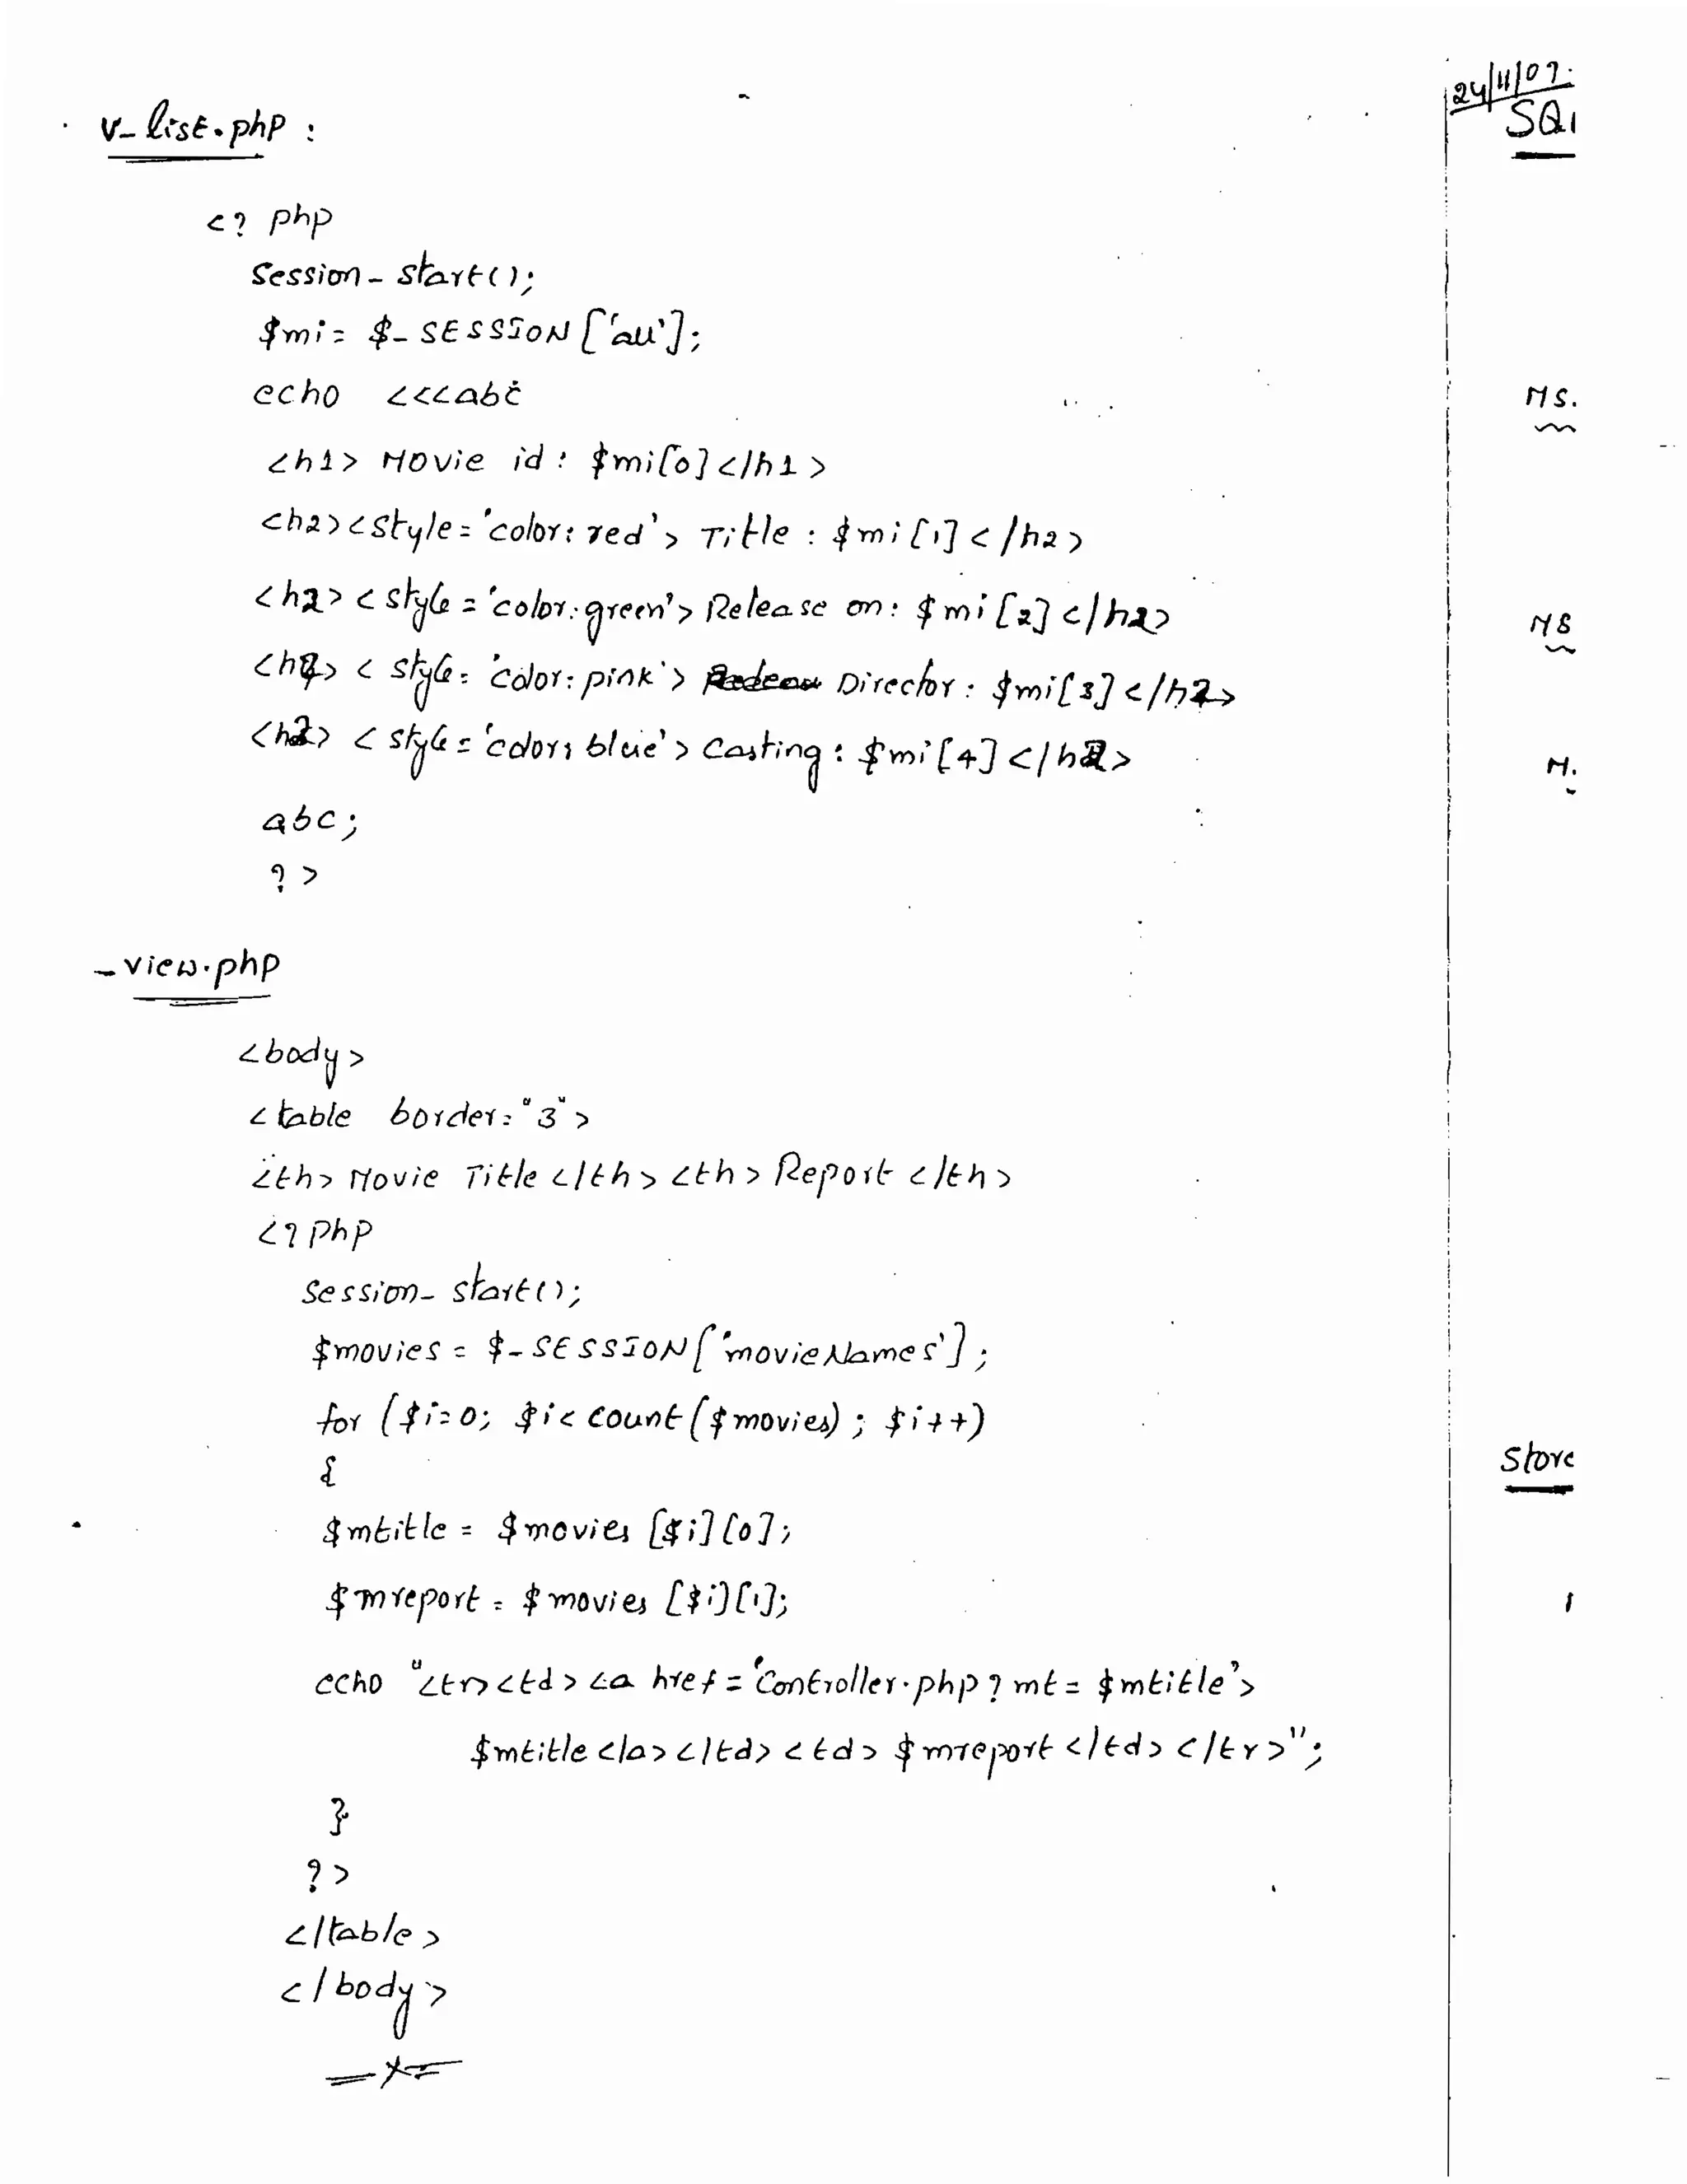 v_list.php :
<? php
session_start();
$mi = $_SESSION['all'];
echo <<<abc
<h1> Movie id : $mi[0]</h1>
<h2><style='color: red'> Title : $mi[1] </h2>
<h2> <style='color:green'> Release on : $mi[2] </h2>
<h2> < style='color: pink'> Director : $mi[3] </h2>
<h2> < style='color: blue'> Casting : $mi[4] </h2>
abc;
? >
- view.php
<body>
<table border="3">
<th> Movie Title </th> <th> Report </th>
<? php
session_start();
$movies = $_SESSION['movieNames'];
for ($i=0; $i< count($movies) ; $i++)
{
$mtitle = $movies [$i][0];
$mreport = $movies [$i][1];
echo "<tr><td> <a href='Controller.php ? mt = $mtitle'>
$mtitle </a> </td> <td> $mreport </td> </tr>";
}
? >
</table>
</body>
24/11/07.
SQl
MS.
MS
M.
Store
1